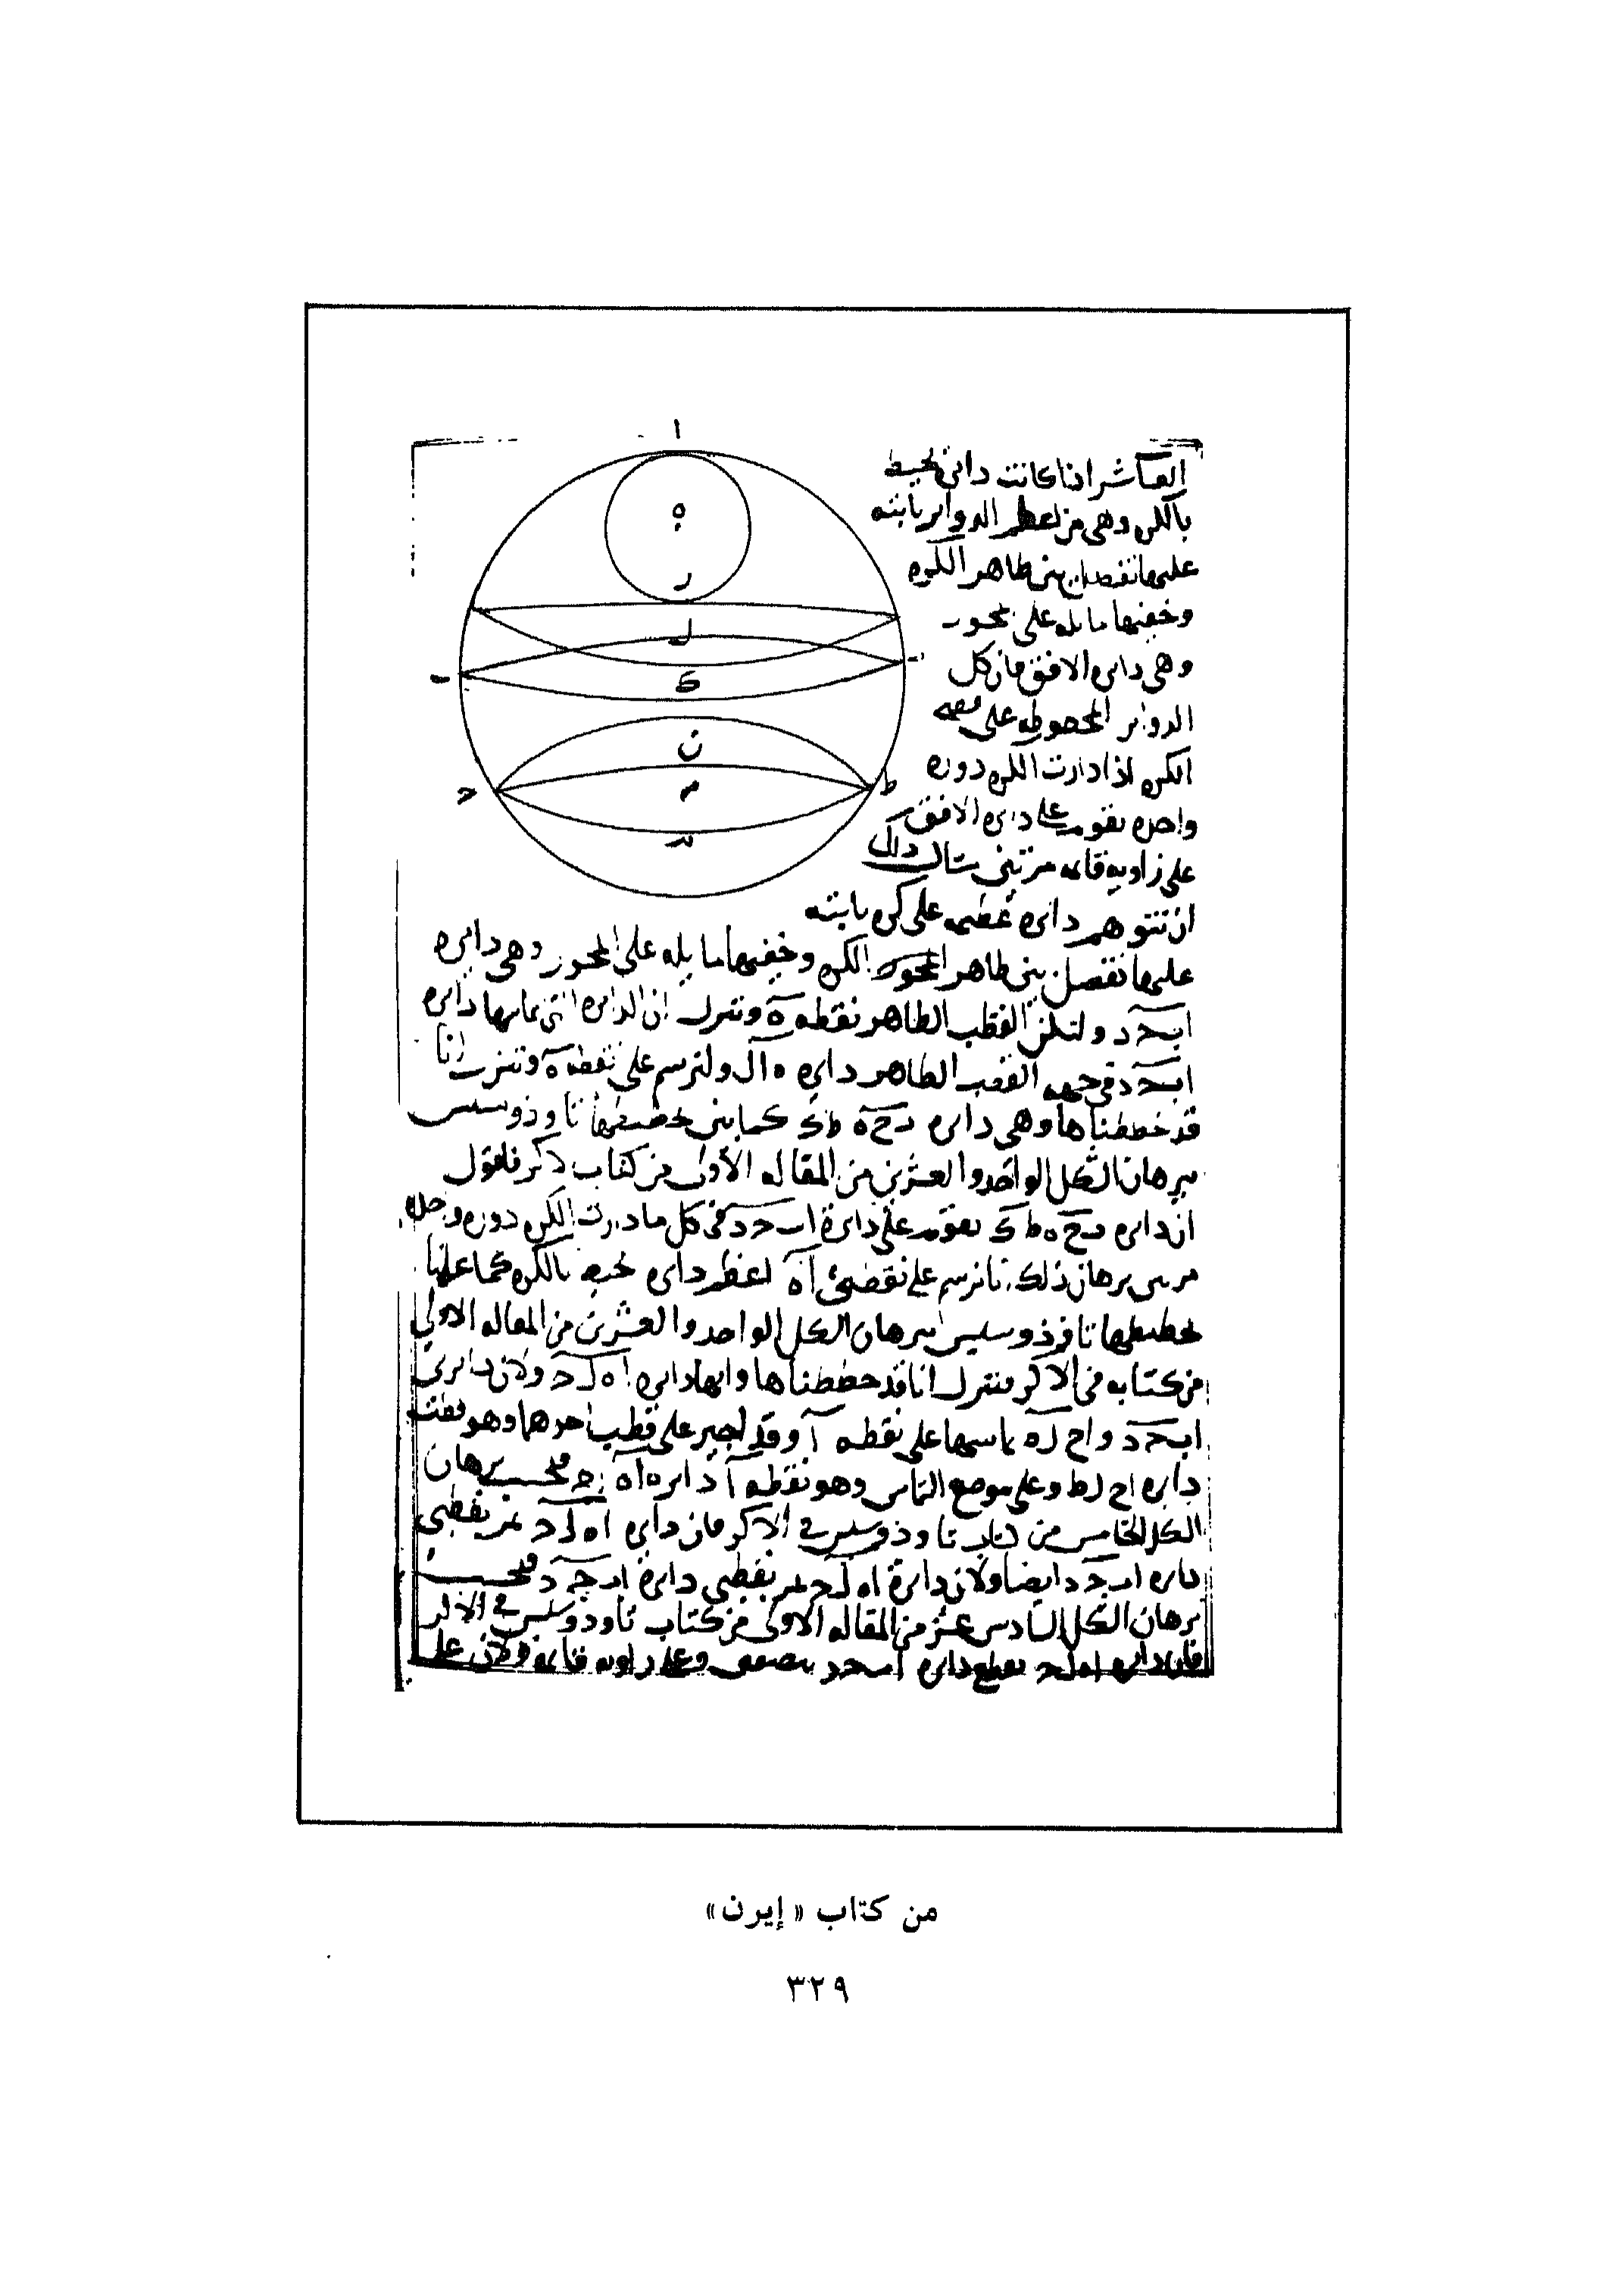 العاشر اذا كانت دائرة تحيط
بالكره وهي من اعظم الدواير ثابته
عليها تفصل بين ظاهر الكره
وخفيها مايله على محور
وهي دايره الافق فان كل
الدواير المخطوطه على
الكره اذا دارت الكره دوره
واحده تقوم على دايره الافق
على زاويه قايمه مرتين مثال ذلك
ان نتوهم دائره عظيمه على كره ثابته
عليها تفصل بين ظاهر الكره وخفيها مايله على المحور وهي دايره
ا ب ج د ولتكن القطب الظاهر نقطه ه وننزل ان الدايره التي تماسها دائره
ا ب ج د في جهه القطب الظاهر دايره ولنرسم على نقطه ه وننزل انا
قد خططناها وهي دايره كما بين تخطيطها ثاوذوسيس
ببرهان الشكل الواحد والعشرين من المقاله الأولى من كتاب الاكر فاقول
ان دايره تقوم على دائرة ا ب ج د في كل ما دارت الكره دوره واحده
مرتين برهان ذلك انا نرسم على نقطتي ا ه اعظم دايره تحيط بالكره كما علمنا
تخطيطها ثاوذوسيس ببرهان الشكل الواحد والعشرين من المقاله الاولي
من كتابه في الاكر وننزل انا قد خططناها وانها دايره ا ه ل ج ولان دايرتي
ا ب ج د و ا ح ل ه تماسها على نقطه ا وقد اجيز على قطب احدهما وهو نقطه
دايره ا ح ل ط وعلى موضع التماس وهو نقطه ا دايره برهان
الشكل الخامس من كتاب ثاوذوسيس في الاكر فان دايره ا ه ل ج تمر بقطبي
دايره ا ب ج د ايضا ولان دائرة ا ه ل ج تمر بقطبي دائرة ا ب ج د فبحسب
برهان الشكل السادس عشر من المقاله الاولى من كتاب ثاودوسيس في الاكر
فان دايره ا ه ل ج تقطع دايره ا ب ج د بنصفين وعلى زاويه قايمه ولان على
ا
ه
ر
ل
ب
ك
ن
ط
م
ح
من كتاب « إيرن »
٣٢٩